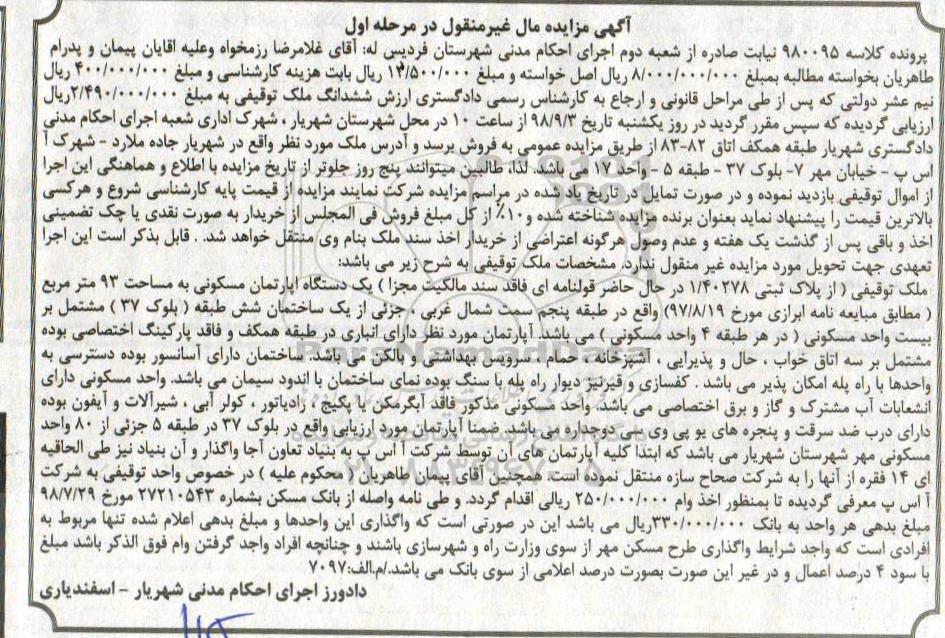 آگهی مزایده مال غیرمنقول در مرحله اول
پرونده کلاسه ۹۸۰۰۹۵ نیابت صادره از شعبه دوم اجرای احکام مدنی شهرستان فردیس له: آقای غلامرضا رزمخواه وعلیه آقایان پیمان و پدرام
طاهریان بخواسته مطالبه بمبلغ ۸/۰۰۰/۰۰۰/۰۰۰ ریال اصل خواسته و مبلغ ۱۳/۵۰۰/۰۰۰ ریال بابت هزینه کارشناسی و مبلغ ۴۰۰/۰۰۰/۰۰۰ ریال
نیم عشر دولتی که پس از طی مراحل قانونی و ارجاع به کارشناس رسمی دادگستری ارزش ششدانگ ملک توقیفی به مبلغ ۲/۴۹۰/۰۰۰/۰۰۰ریال
ارزیابی گردیده که سپس مقرر گردید در روز یکشنبه تاریخ ۹۸/۹/۳ از ساعت ۱۰ در محل شهرستان شهریار ، شهرک اداری شعبه اجرای احکام مدنی
دادگستری شهریار طبقه همکف اتاق ۸۲-۸۳ از طریق مزایده عمومی به فروش برسد و آدرس ملک مورد نظر واقع در شهریار جاده ملارد - شهرک آ
اس پ - خیابان مهر ۷- بلوک ۳۷ - طبقه ۵ - واحد ۱۷ می باشد. لذا، طالبین میتوانند پنج روز جلوتر از تاریخ مزایده با اطلاع و هماهنگی این اجرا
از اموال توقیفی بازدید نموده و در صورت تمایل در تاریخ یاد شده در مراسم مزایده شرکت نمایند مزایده از قیمت پایه کارشناسی شروع و هرکسی
بالاترین قیمت را پیشنهاد نماید بعنوان برنده مزایده شناخته شده و ۱۰٪ از کل مبلغ فروش فی المجلس از خریدار به صورت نقدی یا چک تضمینی
اخذ و باقی پس از گذشت یک هفته و عدم وصول هرگونه اعتراضی از خریدار اخذ سند ملک بنام وی منتقل خواهد شد. . قابل بذکر است این اجرا
تعهدی جهت تحویل مورد مزایده غیر منقول ندارد. مشخصات ملک توقیفی به شرح زیر می باشد:
ملک توقیفی ( از پلاک ثبتی ۱/۴۰۲۷۸ در حال حاضر قولنامه ای فاقد سند مالکیت مجزا ) یک دستگاه آپارتمان مسکونی به مساحت ۹۳ متر مربع
( مطابق مبایعه نامه ابرازی مورخ ۹۷/۸/۱۹) واقع در طبقه پنجم سمت شمال غربی ، جزئی از یک ساختمان شش طبقه ( بلوک ۳۷ ) مشتمل بر
بیست واحد مسکونی ( در هر طبقه ۴ واحد مسکونی ) می باشد. آپارتمان مورد نظر دارای انباری در طبقه همکف و فاقد پارکینگ اختصاصی بوده
مشتمل بر سه اتاق خواب ، حال و پذیرایی ، آشپزخانه ، حمام ، سرویس بهداشتی و بالکن می باشد. ساختمان دارای آسانسور بوده دسترسی به
واحدها با راه پله امکان پذیر می باشد . کفسازی و قیرنیز دیوار راه پله با سنگ بوده نمای ساختمان با اندود سیمان می باشد. واحد مسکونی دارای
انشعابات آب مشترک و گاز و برق اختصاصی می باشد. واحد مسکونی مذکور فاقد آبگرمکن یا پکیج ، رادیاتور ، کولر آبی ، شیرآلات و آیفون بوده
دارای درب ضد سرقت و پنجره های یو پی وی سی دوجداره می باشد. ضمنا آپارتمان مورد ارزیابی واقع در بلوک ۳۷ در طبقه ۵ جزئی از ۸۰ واحد
مسکونی مهر شهرستان شهریار می باشد که ابتدا کلیه آپارتمان های آن توسط شرکت آ اس پ به بنیاد تعاون آجا واگذار و آن بنیاد نیز طی الحاقیه
ای ۱۴ فقره از آنها را به شرکت صحاح سازه منتقل نموده است. همچنین آقای پیمان طاهریان ( محکوم علیه ) در خصوص واحد توقیفی به شرکت
آ اس پ معرفی گردیده تا بمنظور اخذ وام ۲۵۰/۰۰۰/۰۰۰ ریالی اقدام گردد. و طی نامه واصله از بانک مسکن بشماره ۲۷۲۱۰۵۴۳ مورخ ۹۸/۷/۲۹
مبلغ بدهی هر واحد به بانک ۳۳۰/۰۰۰/۰۰۰ریال می باشد این در صورتی است که واگذاری این واحدها و مبلغ بدهی اعلام شده تنها مربوط به
افرادی است که واجد شرایط واگذاری طرح مسکن مهر از سوی وزارت راه و شهرسازی باشند و چنانچه افراد واجد گرفتن وام فوق الذکر باشد مبلغ
با سود ۴ درصد اعمال و در غیر این صورت بصورت درصد اعلامی از سوی بانک می باشد./م.الف:۷۰۹۷
دادورز اجرای احکام مدنی شهریار - اسفندیاری